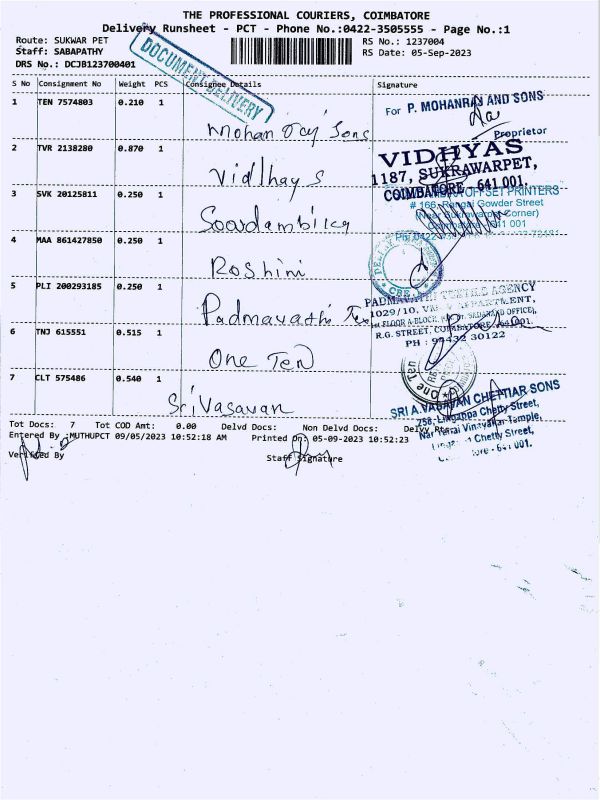 THE PROFESSIONAL COURIERS, COIMBATORE
Delivery Runsheet - PCT - Phone No.:0422-3505555 - Page No.:1
Route: SUKWAR PET
RS No.: 1237004
Staff: SABAPATHY
RS Date: 05-Sep-2023
DRS No.: DCJB123700401
DOCUMENT DELIVERY
S No Consignment No Weight PCS Consignee Details Signature
1 TEN 7574803 0.210 1 Mohan raj Sons
For P. MOHANRAJ AND SONS
Proprietor
2 TVR 2138280 0.870 1 Vidlhays
VIDHYAS
1187, SUKRAWARPET,
COIMBATORE - 641 001.
3 SVK 20125811 0.250 1 Soordambika
OFFSET PRINTERS
# 166, Rangai Gowder Street
(Near Sukrawarpet Corner)
4 MAA 861427850 0.250 1 Roshini
CBE
5 PLI 200293185 0.250 1 Padmavathi Tex
PADMAVATHI TEXTILE AGENCY
R.G. STREET, COIMBATORE - 641 001.
PH : 94432 30122
6 TNJ 615551 0.515 1 One Ten
One Ten
7 CLT 575486 0.540 1 Sri Vasavan
SRI A. VASAVAN CHETTIAR SONS
258, Lingappa Chetty Street,
Near Temple,
Chetty Street,
Tot Docs: 7 Tot COD Amt: 0.00 Delvd Docs: Non Delvd Docs:
Entered By :MUTHUPCT 09/05/2023 10:52:18 AM Printed On: 05-09-2023 10:52:23
Verified By
Staff Signature